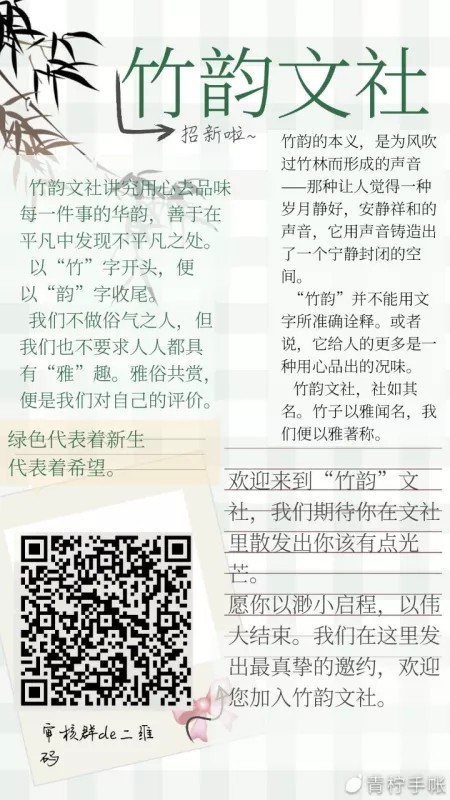 竹韵文社
招新啦~
竹韵文社讲究用心去品味
每一件事的华韵，善于在
平凡中发现不平凡之处。
以“竹”字开头，便
以“韵”字收尾。
我们不做俗气之人，但
我们也不要求人人都具
有“雅”趣。雅俗共赏，
便是我们对自己的评价。
绿色代表着新生
代表着希望。
竹韵的本义，是为风吹
过竹林而形成的声音
——那种让人觉得一种
岁月静好，安静祥和的
声音，它用声音铸造出
了一个宁静封闭的空
间。
“竹韵”并不能用文
字所准确诠释。或者
说，它给人的更多是一
种用心品出的况味。
竹韵文社，社如其
名。竹子以雅闻名，我
们便以雅著称。
欢迎来到“竹韵”文
社，我们期待你在文社
里散发出你该有点光
芒。
愿你以渺小启程，以伟
大结束。我们在这里发
出最真挚的邀约，欢迎
您加入竹韵文社。
审核群de二维
码
青柠手帐